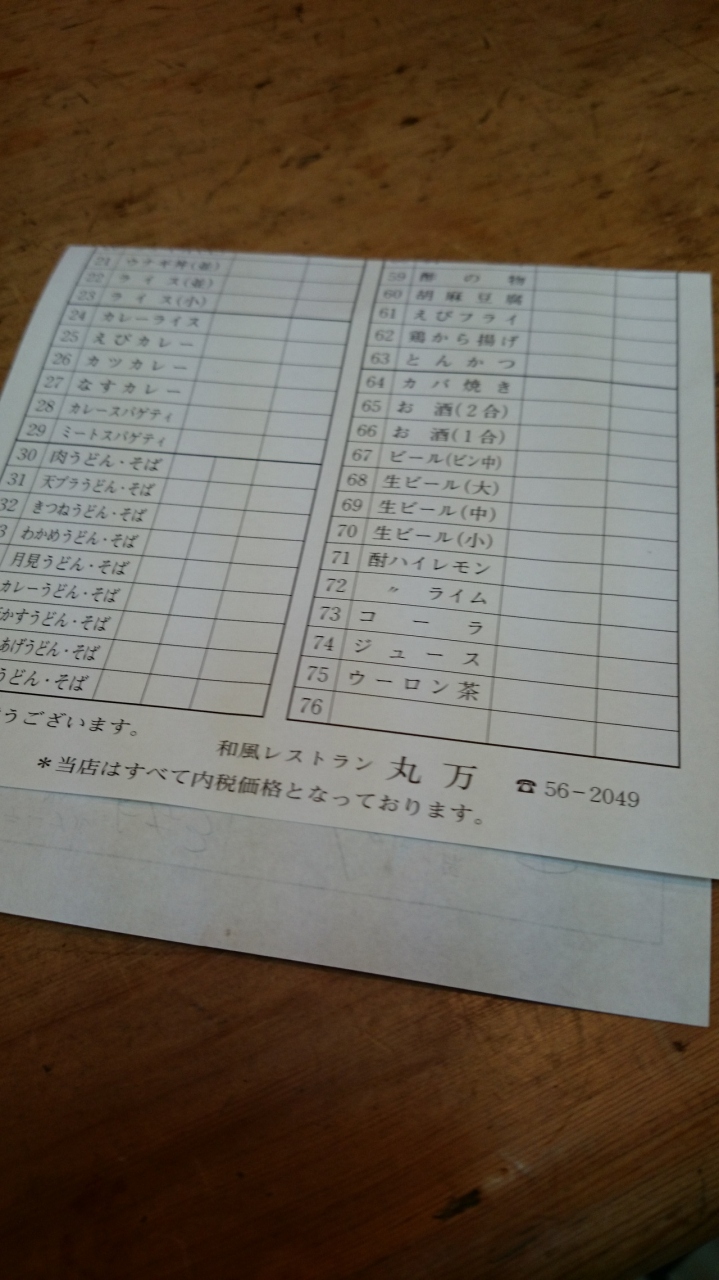 21 ウナギ丼(並)
22 ライス(並)
23 ライス(小)
24 カレーライス
25 えびカレー
26 カツカレー
27 なすカレー
28 カレースパゲティ
29 ミートスパゲティ
30 肉うどん・そば
31 天プラうどん・そば
32 きつねうどん・そば
3 わかめうどん・そば
月見うどん・そば
カレーうどん・そば
かすうどん・そば
あげうどん・そば
うどん・そば
59 酢の物
60 胡麻豆腐
61 えびフライ
62 鶏から揚げ
63 とんかつ
64 カバ焼き
65 お酒(2合)
66 お酒(1合)
67 ビール(ビン中)
68 生ビール(大)
69 生ビール(中)
70 生ビール(小)
71 酎ハイレモン
72 〃 ライム
73 コーラ
74 ジュース
75 ウーロン茶
76
うございます。
和風レストラン 丸万 ☎56-2049
*当店はすべて内税価格となっております。